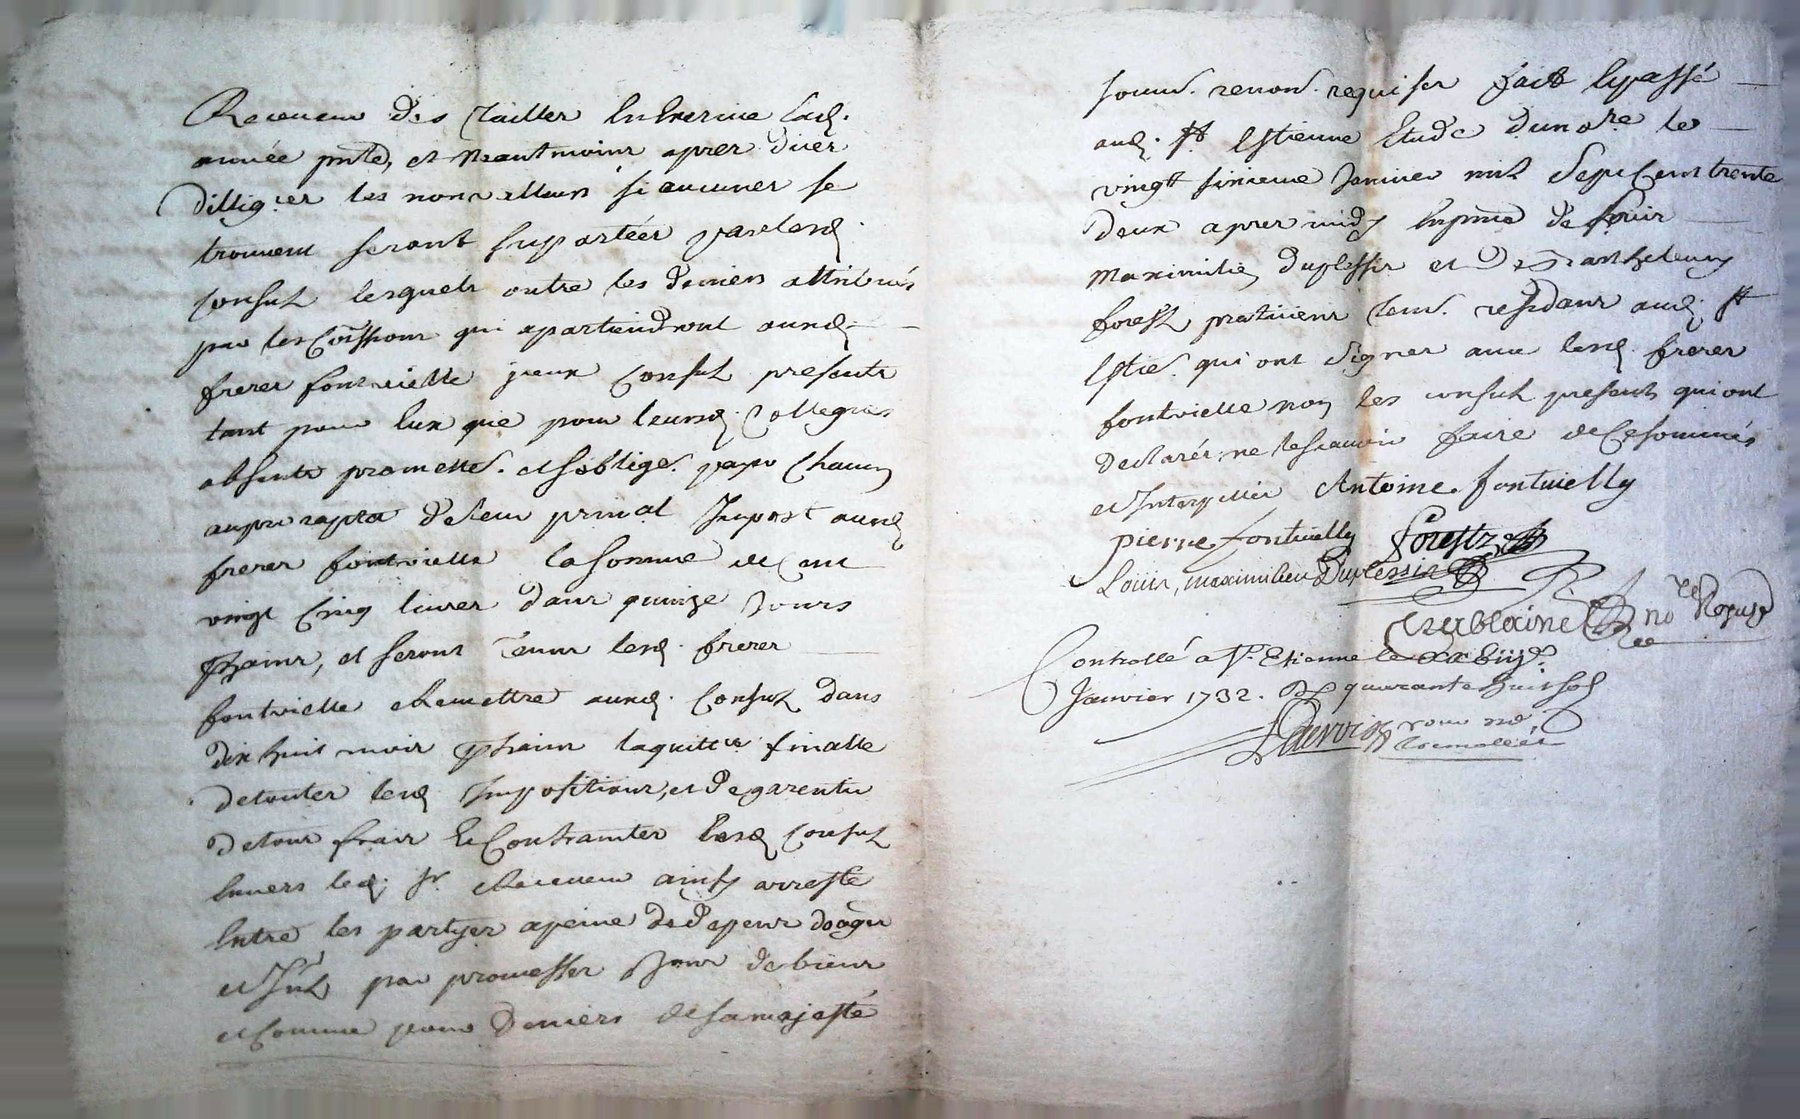 Receveur des tailles en exercice lad.
année pnte, et neantmoins apres dues
dilligces les nonvalleurs si aucunes se
trouvent seront suportées par lesd.
consulz lesquels outre les deniers attribués
par les Coissions qui apartiendront ausd.
freres fontvieille yceux Consulz presents
tant pour eux que pour leursd. Collegues
absents promettt. et s'obligt. payer Chacun
au pro rapta de leur prinal Impost ausd
freres fontvielle la somme de Cent
vingt Cinq livres dans quinze Jours
phains, et seront tenus lesd. freres
fontvielle de remettre ausd. Consulz dans
dix huit mois phains la quittce finalle
de toutes lesd Impositions, et de garentir
de tous frais et Contraintes lesd Consulz
envers led. sr. Receveur ainsy arresté
Entre les partyes a peine de depens
et Intz par promesses de biens
et Comme pour deniers de sa majesté
soum. renon. requises fait et passé
aud. St Estienne Etude du nore le
vingt sixieme Janvier mil Sept Cent trente
deux apres midy En pnce de Louis
Maximilien duplessis et de
forestz praticiens tem. residans aud. St
Estie. qui ont signer avec lesd. freres
fontvielle non les consulz presents qui ont
declarés ne le scavoir faire de Ce sommés
et Interpellés Antoine fontvielly
pierre fontvielly forestz
Louis, maximilien Duplessis
nore Royal
Controllé a St. Etienne le
Janvier 1732. R quarante huit sols